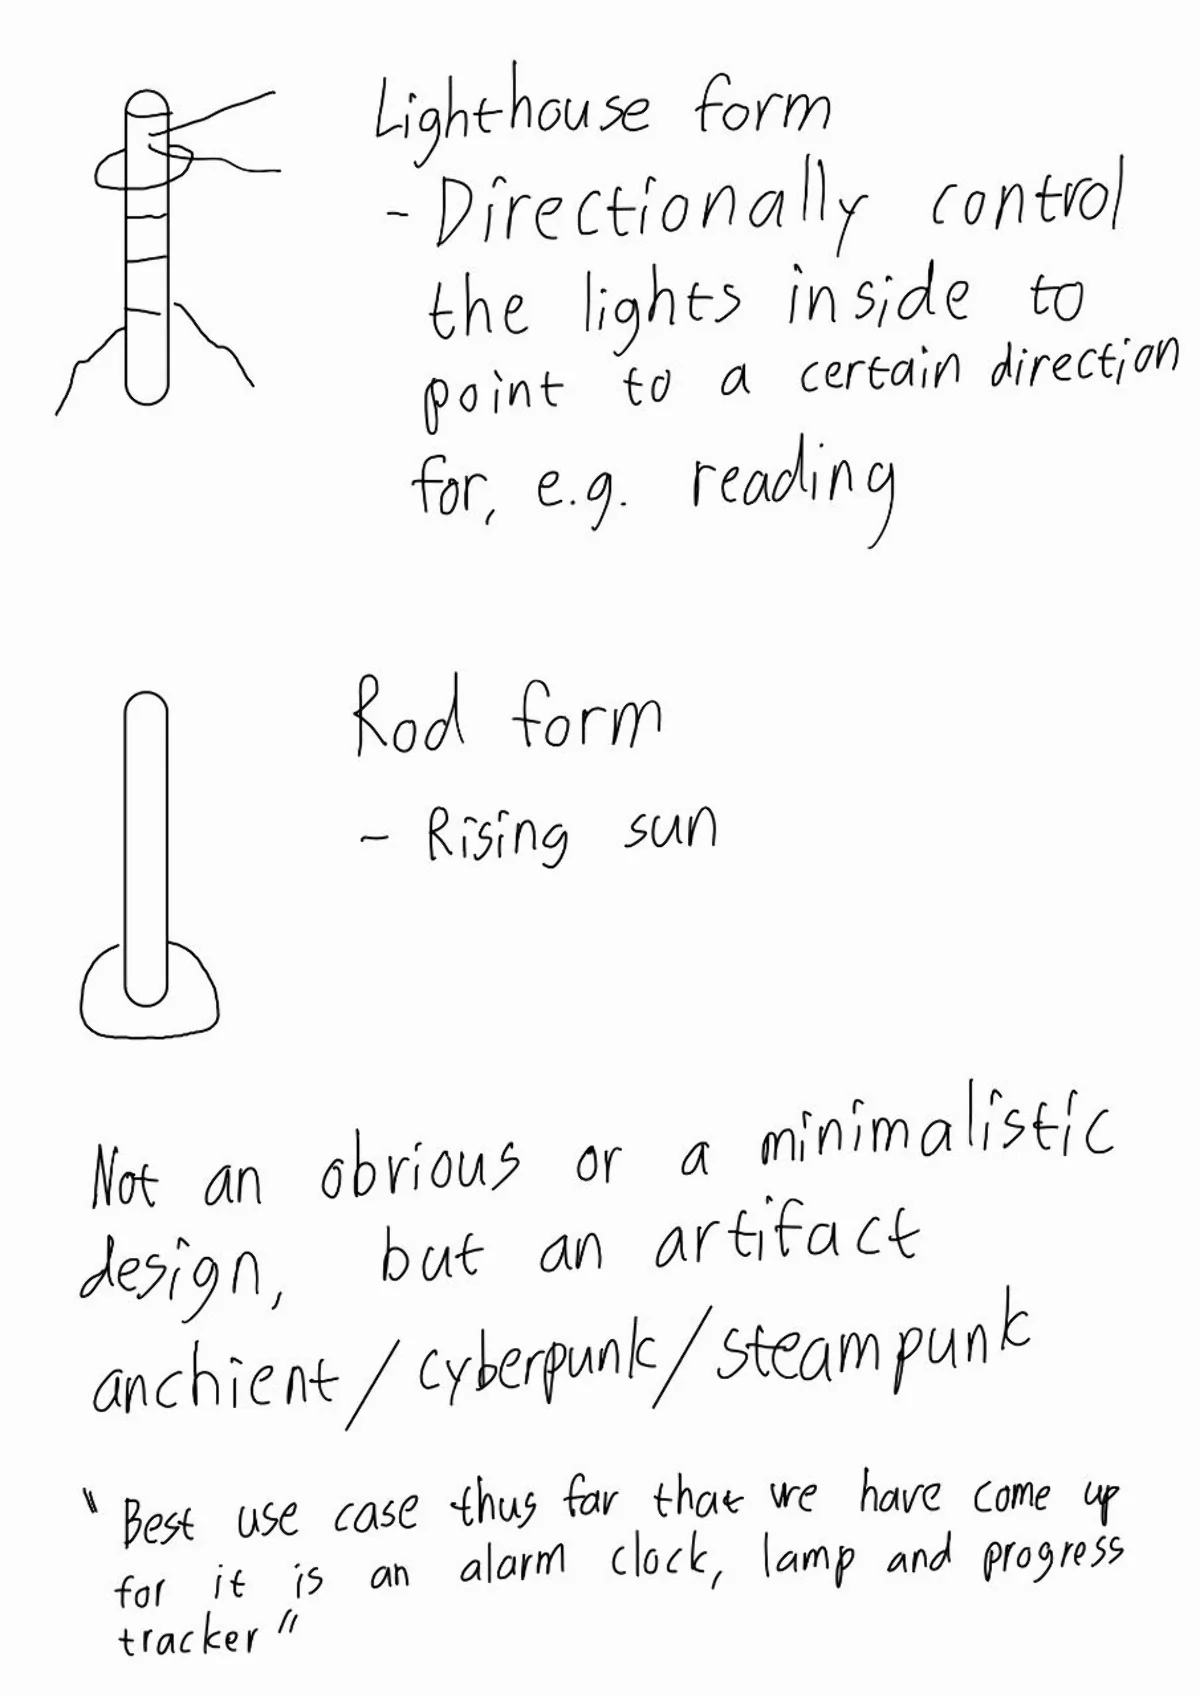 Lighthouse form
- Directionally control
the lights inside to
point to a certain direction
for, e.g. reading
Rod form
- Rising sun
Not an obvious or a minimalistic
design, but an artifact
anchient/cyberpunk/steampunk
"Best use case thus far that we have come up
for it is an alarm clock, lamp and progress
tracker"